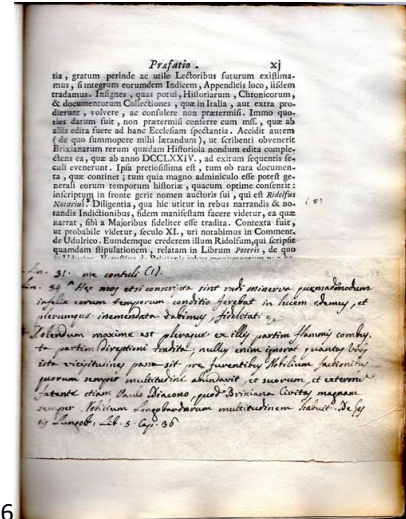 Præfatio. xj
tia, gratum perinde ac utile Lectoribus futurum existima-
mus, si integrum eorumdem Indicem, Appendicis loco, iisdem
tradamus. Insignes, quas potui, Historiarum, Chronicorum,
& documentorum Collectiones, quæ in Italia, aut extra pro-
dierunt, volvere, ac consulere non prætermisi. Immo quo-
ties datum fuit, non prætermisi conferre cum mss, quæ ab
aliis edita fuere ad hanc Ecclesiam spectantia. Accidit autem
(de quo summopere mihi lætandum), ut scribenti obvenerit
Brixianarum rerum quædam Historiola nondum edita comple-
ctens ea, quæ ab anno DCCLXXIV, ad exitum sequentis se-
culi evenerunt. Ipsa pretiosissima est, tum ob rara documen-
ta, quæ continet; tum quia magno adminiculo esse potest ge-
nerali eorum temporum historiæ, quacum optime consentit:
inscriptum in fronte gerit nomen auctoris sui, qui est Ridolfus
Notarius. Diligentia, qua hic utitur in rebus narrandis & no-
tandis Indictionibus, fidem manifestam facere videtur, ea quæ
narrat, sibi a Majoribus fideliter esse tradita. Contexta fuit,
ut probabile videtur, seculo XI, uti notabimus in Comment.
de Udulrico. Eumdemque crederem illum Ridolfum, qui scripsit
quamdam stipulationem, relatam in Librum Poteris, de quo
31. me contuli (1).
34 Hec mos etsi conscripta sint rudi minerva quemadmodum
infelix eorum temporum conditio ferebat in lucem edemus, et
plerumque inemendata dabimus fidelitati
Dolendum maxime est pleraque ex illis partim flammis combus-
ta partim direptioni tradita; nullus enim ignorat quantas Urbs
ista vicissitudines passa sit pre furentibus Nobilium factionibus
quorum semper multitudine abundavit, et suorum, et externorum
fatente etiam Paulo Diacono, quod Brixiana Civitas magnam
semper Nobilium Langobardorum multitudinem habuit. De Ges
tis Langob: Lib. 5. Cap. 36
6